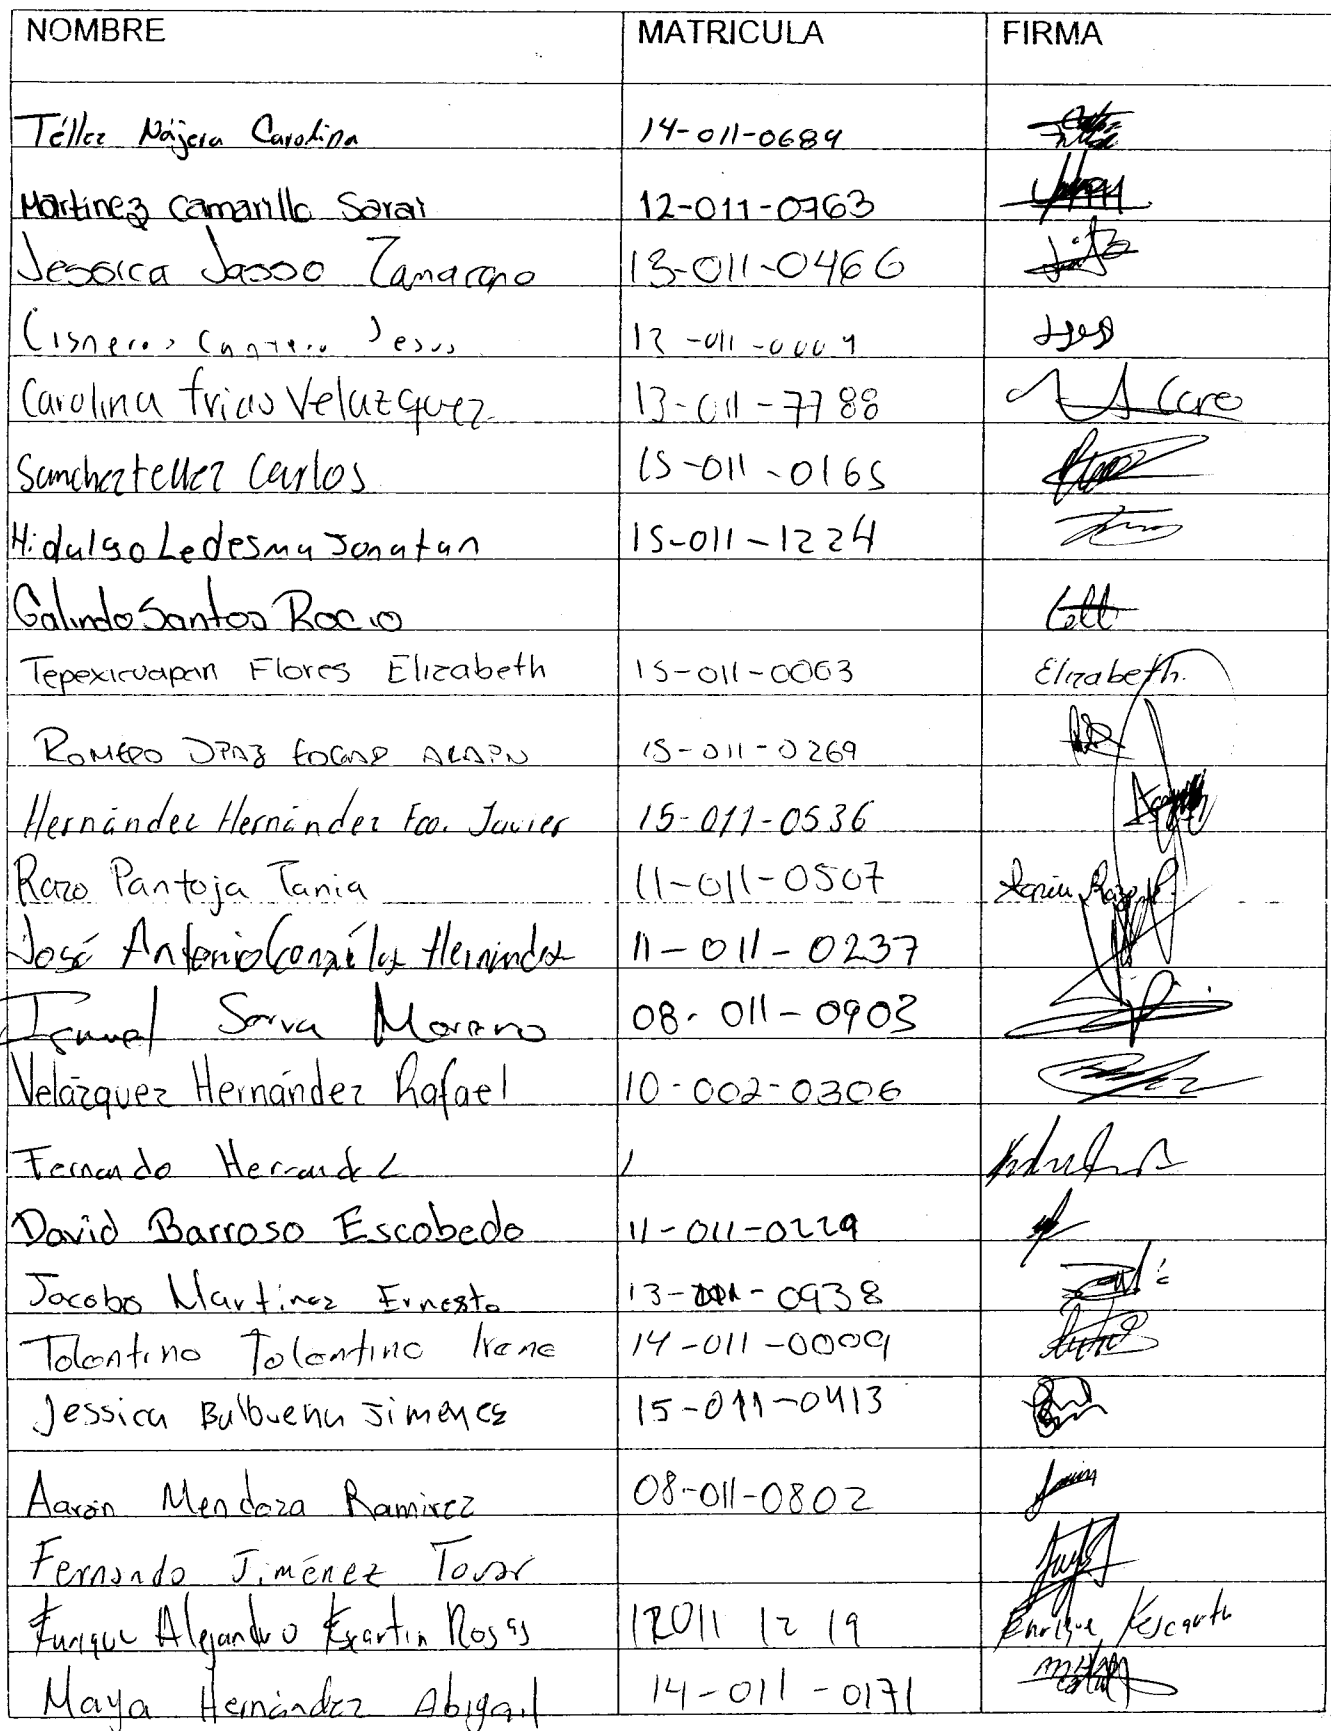 NOMBRE MATRICULA FIRMA
Téllez Nájera Carolina 14-011-0689
Martinez Camarillo Sarai 12-011-0763
Jessica Jasso Zamarano 13-011-0466
Cisneros Cantero Jesus 12-011-0009
Carolina frias Velazquez 13-011-7788 Caro
Sanchez tellez Carlos 15-011-0165
Hidalgo Ledesma Jonatan 15-011-1224
Galindo Santos Rocio
Tepexicuapan Flores Elizabeth 15-011-0063 Elizabeth.
ROMERO DIAZ EDGAR ALAIN 15-011-0269
Hernández Hernández Fco. Javier 15-011-0536
Razo Pantoja Tania 11-011-0507 Tania Razo P.
José Antonio González Hernández 11-011-0237
Ismael Serva Moreno 08-011-0903
Velázquez Hernández Rafael 10-002-0306
Fernando Hernandez /
David Barroso Escobedo 11-011-0229
Jacobo Martinez Ernesto 13-011-0938
Tolentino Tolentino Irene 14-011-0009
Jessica Bulbuena Jimenez 15-011-0413
Aarón Mendoza Ramirez 08-011-0802
Fernando Jiménez Tovar
Enrique Alejandro Escartin Rosas 12011 12 19 Enrique
Maya Hernández Abigail 14-011-0171